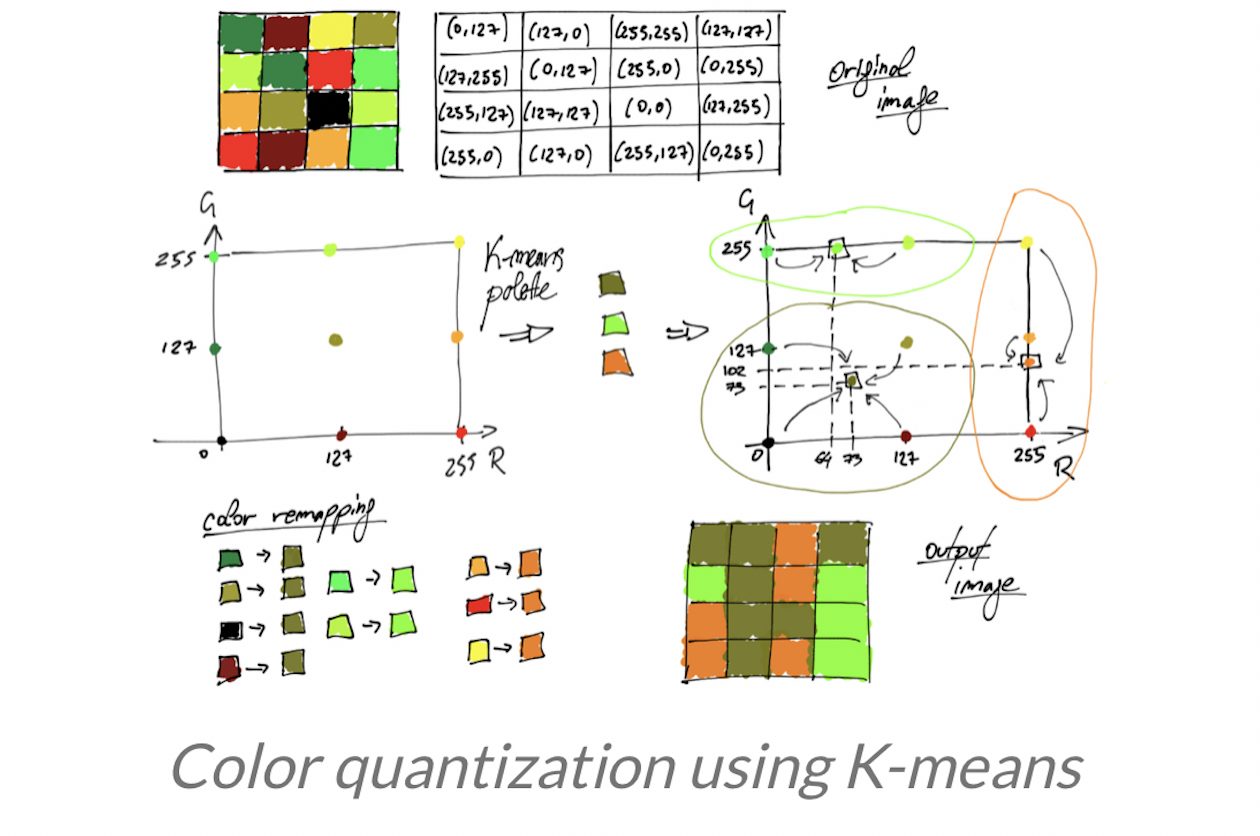 (0,127) (127,0) (255,255) (127,127)
(127,255) (0,127) (255,0) (0,255)
(255,127) (127,127) (0,0) (127,255)
(255,0) (127,0) (255,127) (0,255)
original
image
G
255
127
0 127 255 R
K-means
palette
G
255
127
102
73
0 64 73 127 255 R
color remapping
output
image
Color quantization using K-means